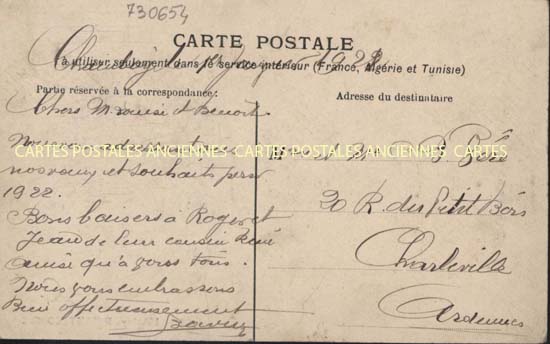 730654
CARTE POSTALE
1er Janvier 1922
à utiliser seulement dans le service intérieur (France, Algérie et Tunisie)
Partie réservée à la correspondance:
Adresse du destinataire
Chers Benoit
CARTES POSTALES ANCIENNES CARTES POSTALES ANCIENNES CARTES POSTALES ANCIENNES
nos vœux et souhaits pour
1922.
Bons baisers a Roger et
Jean de leur cousin René
ainsi qu'à vous tous.
Nous vous embrassons
Bien affectueusement
20 R. du Petit Bois
Charleville
Ardennes